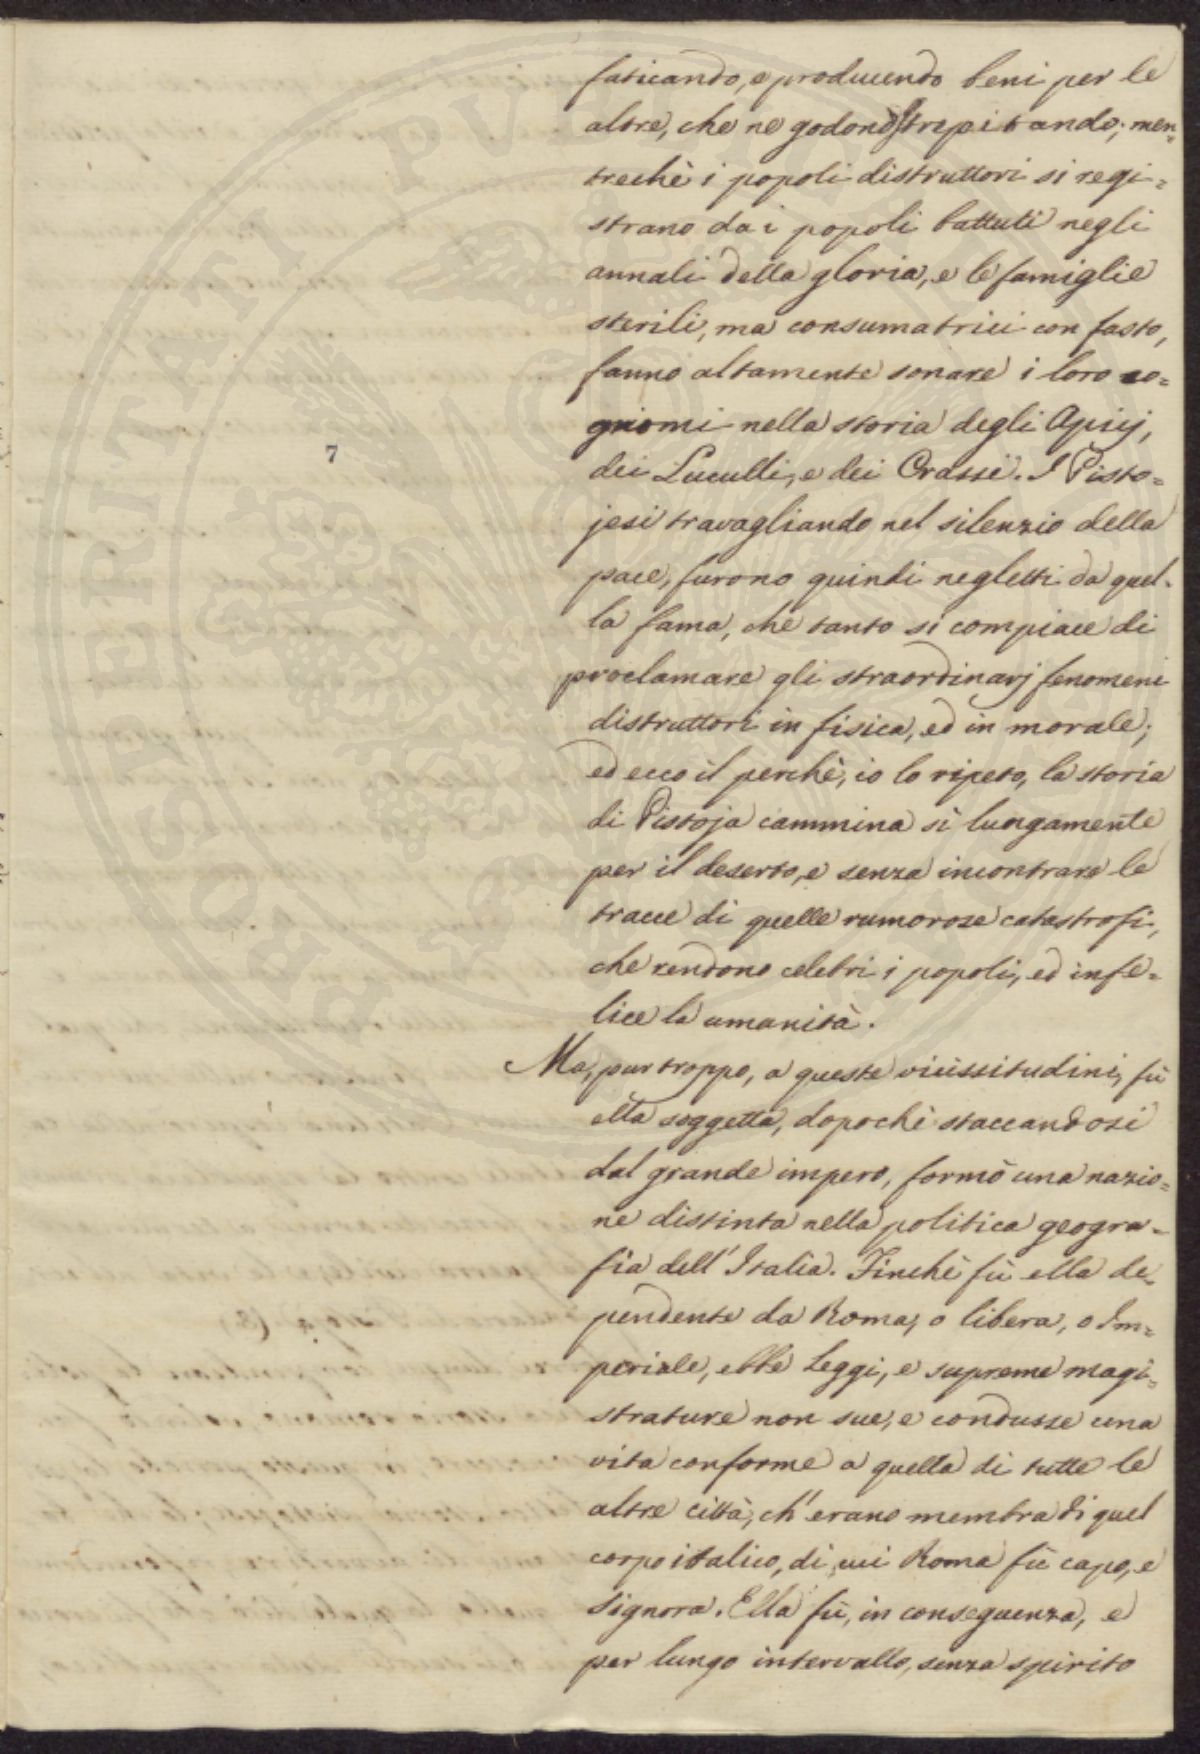 faticando, e producendo beni per le
altre, che ne godono strepitando; men=
trechè i popoli distruttori si regi=
strano da i popoli battuti negli
annali della gloria, e le famiglie
sterili, ma consumatrici con fasto,
fanno altamente sonare i loro co=
gnomi nella storia degli Apicj,
dei Luculli, e dei Crassi. I Pisto=
jesi travagliando nel silenzio della
pace, furono quindi negletti da quel=
la fama, che tanto si compiace di
proclamare gli straordinarj fenomeni
distruttori in fisica, ed in morale;
ed ecco il perchè, io lo ripeto, la storia
di Pistoja cammina sì lungamente
per il deserto, e senza incontrare le
tracce di quelle rumorose catastrofi,
che rendono celebri i popoli, ed infe=
lice la umanità.
Ma, pur troppo, a queste vicissitudini, fù
ella soggetta, dopochè staccandosi
dal grande impero, formò una nazio=
ne distinta nella politica geogra=
fia dell'Italia. Finchè fù ella de=
pendente da Roma, o libera, o Im=
periale, ebbe Leggi, e supreme magi=
strature non sue, e condusse una
vita conforme a quella di tutte le
altre città, ch'erano membra di quel
corpo italico, di cui Roma fù capo, e
Signora. Ella fù, in conseguenza, e
per lungo intervallo, senza spirito
7
PROSPERITATI PUBLICAE